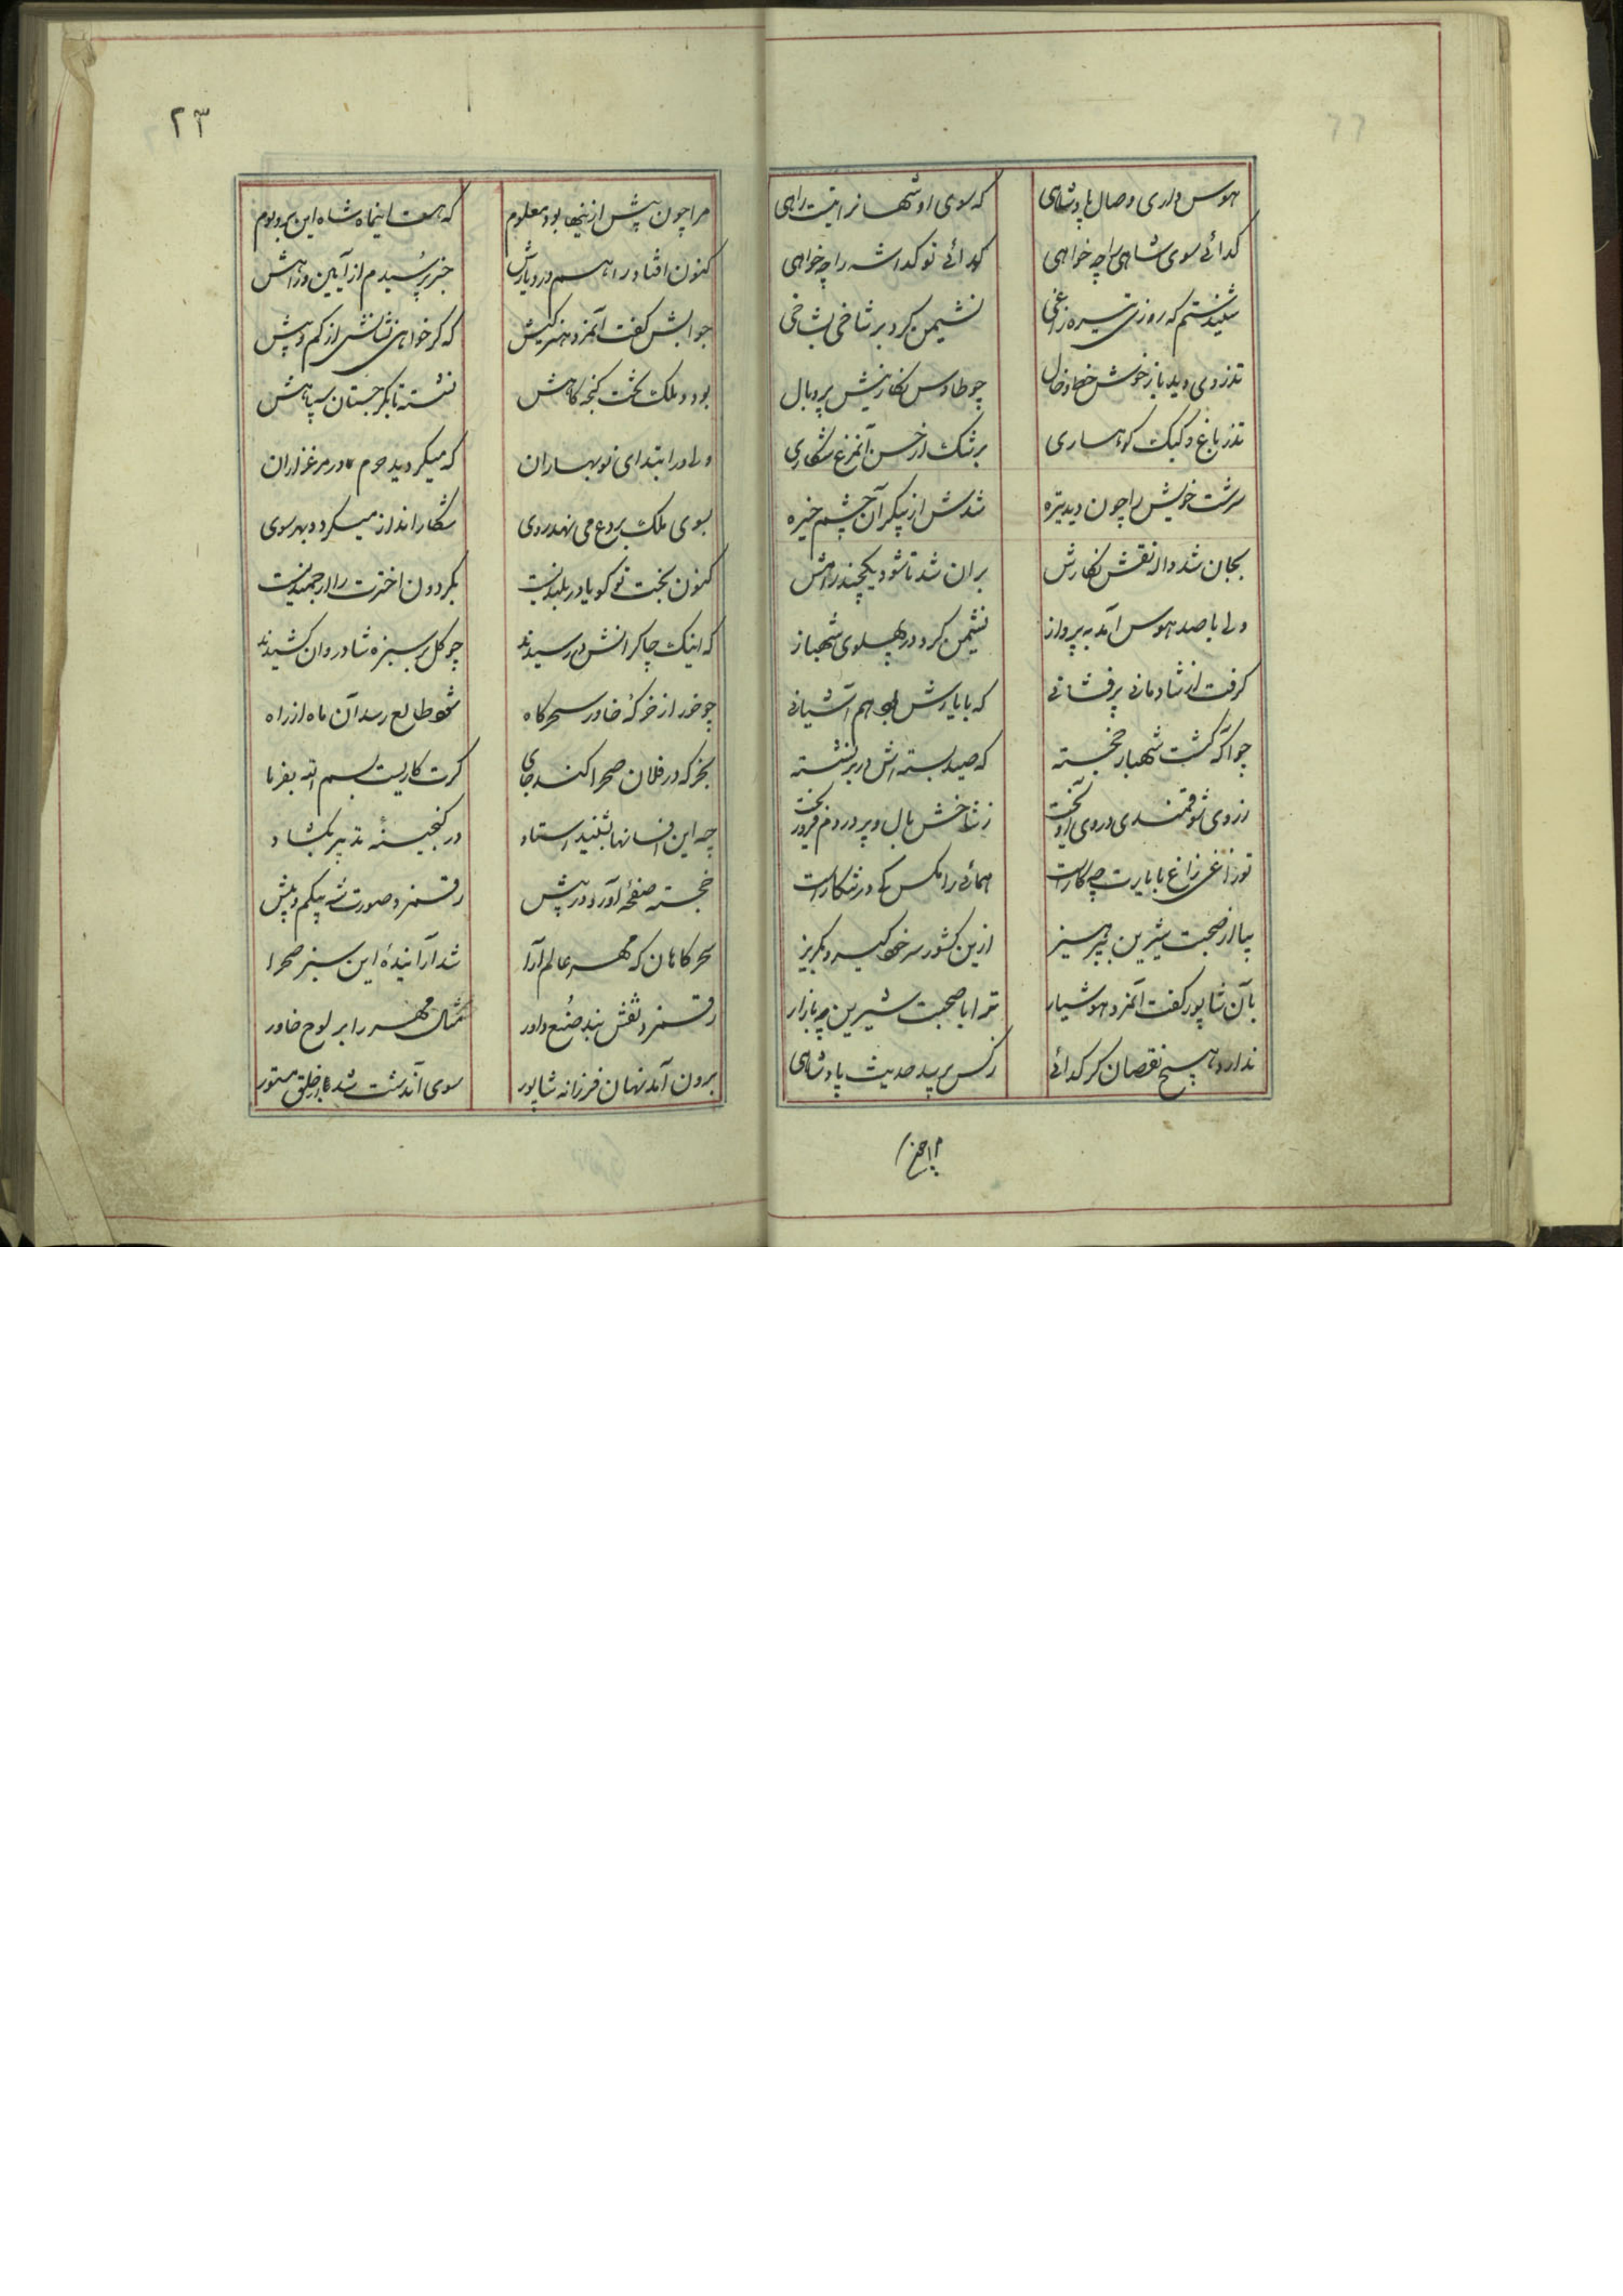 هوس داری وصال پادشاهی
که سوی او شهانرا نیست راهی
کدائے سوی شاهی را چه خواهی
کدائے تو کدا شه را چه خواهی
شنیدستم که روزی تیره زاغی
نشیمن کرد بر شاخی بشاخی
تذروی دید باز خوش خط و خال
چو طاوس نکارینش پر و بال
تذر باغ و کبک کوهساری
برشک از حسن آنمرغ شکاری
سرشت خویش را چون دید تیره
شدش از پیکر آن چشم خیره
بجان شد واله نقش نکارش
بران شد تا شود یکچند
ولے با صد هوس آمد به پرواز
نشیمن کرد در پهلوی شهباز
کرفت از شادمانے پرفشانے
که با یارش بود هم آشیانے
چو آکه کشت شهباز خجسته
که صید بسته اش در بر نشسته
ز روی شوقمندی در وی آویخت
ز شاخش بال و پر در دم فروریخت
تو زاغی زاغ با بازت چه کار است
همائے را مکس کے در شکار است
بیا از صحبت شیرین بپرهیز
ازین کشور سر خود کیر و بکریز
بآن شاپور کفت آنمرد هوشیار
ترا با صحبت شیرین چه بازار
ندارد هیچ نقصان کر کدائے
ز کس پرسد حدیث پادشاهی
مرا چون
۲۳
مرا چون پیش از اینها بود معلوم
که هست اینماه شاه این بر و بوم
کنون افتاد راهم در دیارش
خبر پرسیدم از آیین و راهش
جوابش کفت آنمرد هنرکیش
که کر خواهی نشانش از کم و بیش
بود در ملک تخت کنجه کاهش
نشسته تا بکرجستان سپاهش
ولے در ابتدای نوبهاران
که میکردید خرم مرغزاران
بسوی ملک بردع می نهد روی
شکار انداز میکردد بهر سوی
کنون بخت تو کویا در بلندیست
بکردون اخترت را ارجمندیست
که اینک چاکرانش در رسیدند
چو کل بر سبزه شادروان کشیدند
چو خور از خرکه خاور سحرکاه
شود طالع رسد آن ماه از راه
بخر که در فلان صحرا کند جای
کرت کاریست بسم الله بفرما
چه این افسانها بشنید استاد
در کنجینه تدبیر بکشاد
خجسته صفحه آورد در پیش
رقم زد صورت شه بیکم و بیش
سحرکاهان که مهر عالم آرا
شد آراینده این سبز صحرا
رقم زد نقش بند صنع داور
مثال مهر را بر لوح خاور
برون آمد نهان فرزانه شاپور
سوی آندشت شد از خلق مستور